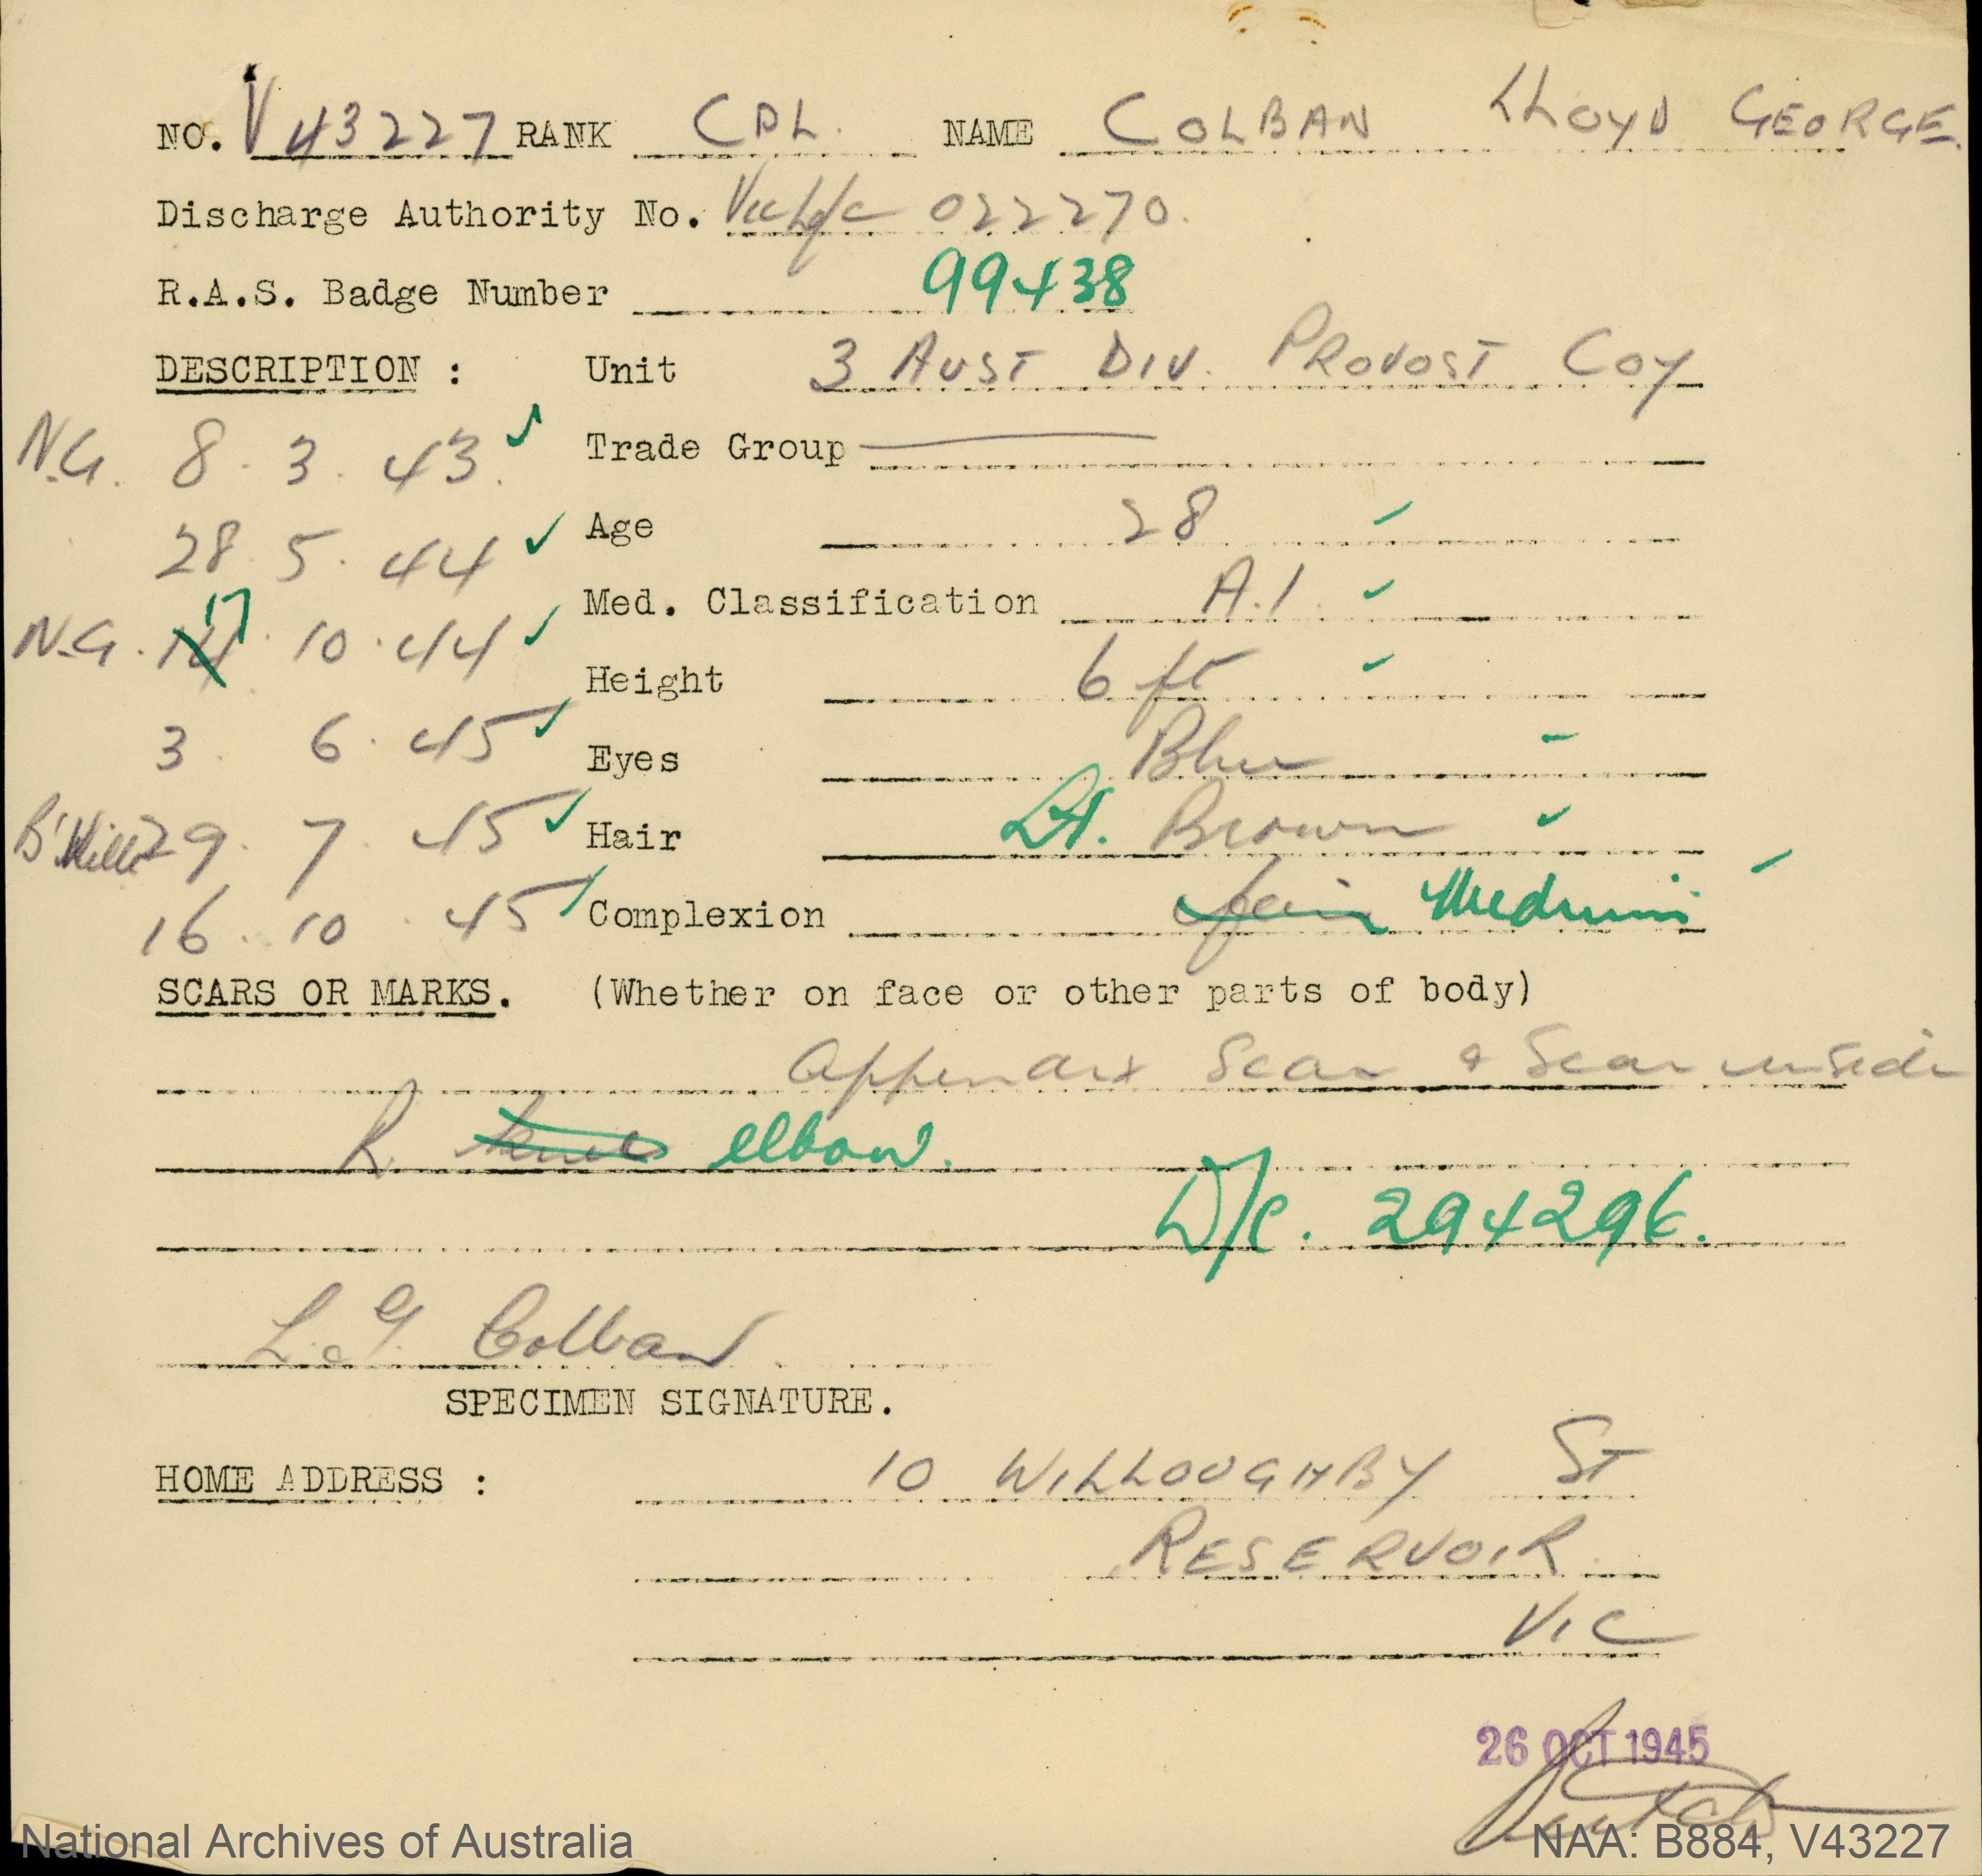 NO. V43227 RANK CPL. NAME COLBAN LLOYD GEORGE.
Discharge Authority No. 022270.
R.A.S. Badge Number 99438
DESCRIPTION : Unit 3 AUST DIV. PROVOST COY
N.G. 8. 3. 43. Trade Group
28. 5. 44 Age 28
N.G. 17. 10. 44 Med. Classification A.1.
3. 6. 45 Height 6 ft
Eyes Blue
29. 7. 45 Hair Lt. Brown
16. 10. 45 Complexion Fair Medium
SCARS OR MARKS. (Whether on face or other parts of body)
Appendix Scar & Scar inside
R. elbow.
D/C. 294296.
L. G. Colban
SPECIMEN SIGNATURE.
HOME ADDRESS : 10 WILLOUGHBY ST
RESERVOIR
VIC
26 OCT 1945
National Archives of Australia NAA: B884, V43227